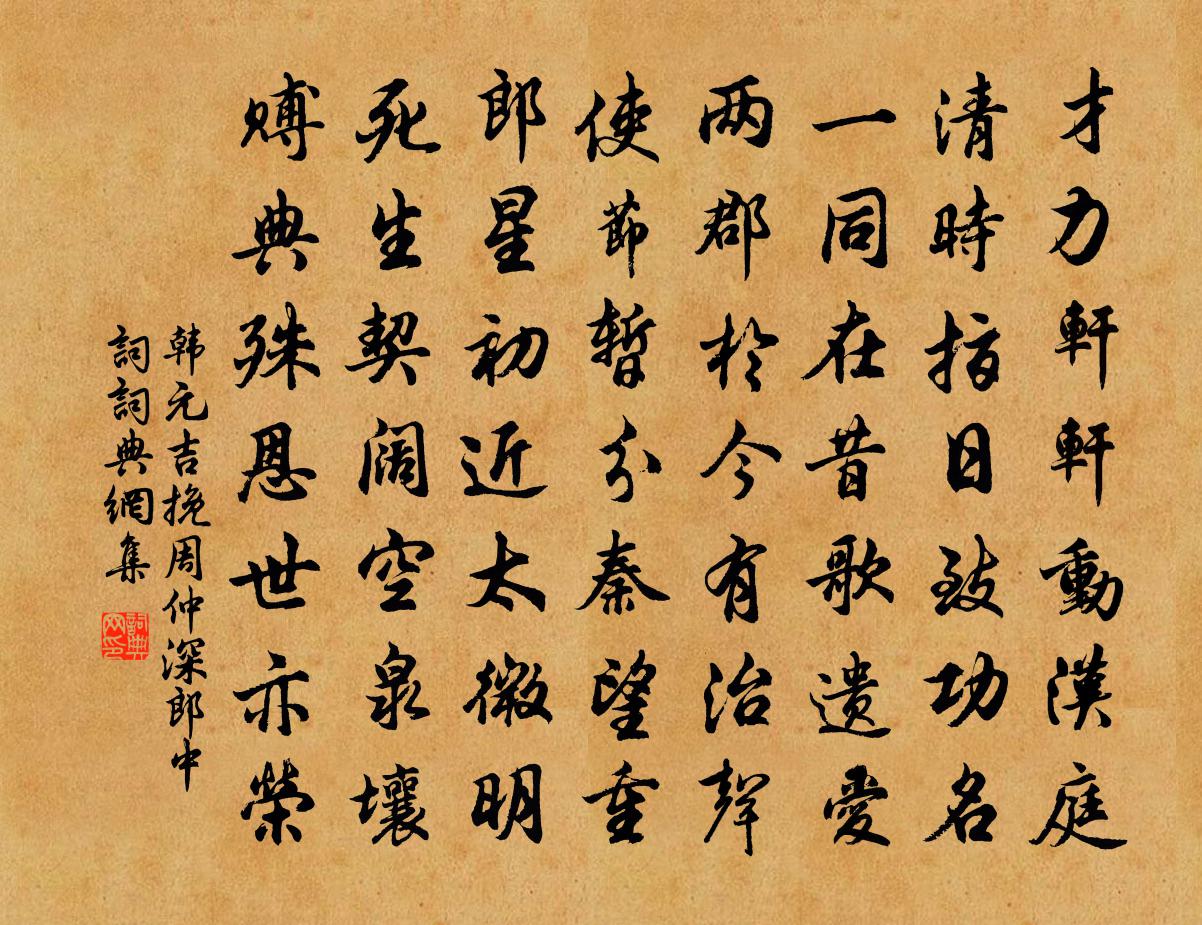 才力軒軒動漢庭
清時指日致功名
一同在昔歌遗愛
两郡於今有治聲
使節暫分秦望重
郎星初近太微明
死生契阔空泉壤
賻典殊恩世亦榮
韩元吉挽周仲深郎中
詞詞典網集
詞典网印